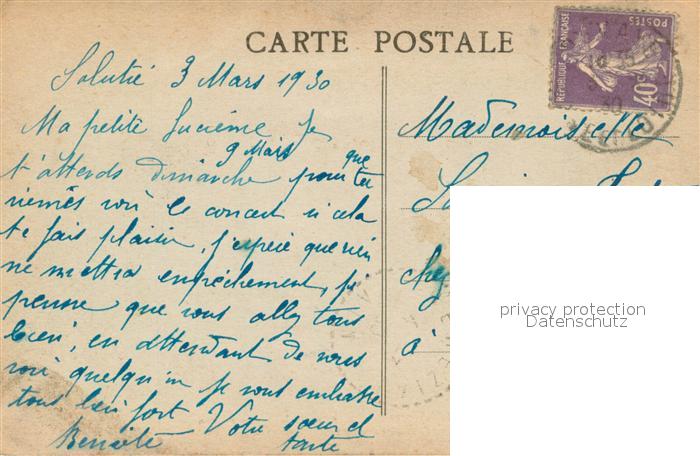 CARTE POSTALE
RÉPUBLIQUE FRANÇAISE
POSTES
40c
3 Mars 1930
Ma petite Je
9 Mars
t'attends dimanche pour que tu
viennes voir le concert si cela
te fais plaisir, j'espère que rien
ne mettra empréchement, je
pense que vous allez tous
bien, en attendant de vous
voir quelqu'un je vous embrasse
tous bien fort Votre sœur et
tante
Mademoiselle
chez
à
privacy protection
Datenschutz